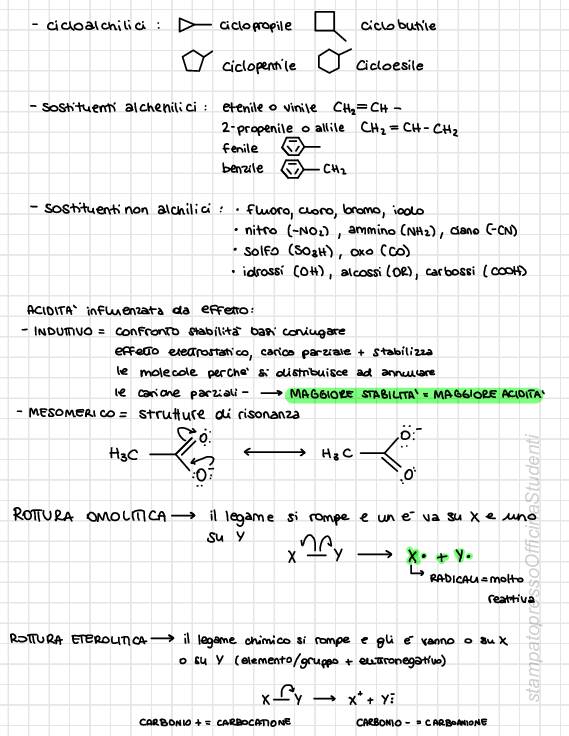 - cicloalchilici : ciclopropile ciclobutile
ciclopentile cicloesile
- sostituenti alchenilici : etenile o vinile CH₂=CH -
2-propenile o allile CH₂ = CH - CH₂
fenile
benzile CH₂
- sostituenti non alchilici : • fluoro, cloro, bromo, iodo
• nitro (-NO₂) , ammino (NH₂) , ciano (-CN)
• solfo (SO₃H) , oxo (CO)
• idrossi (OH) , alcossi (OR) , carbossi (COOH)
ACIDITA' influenzata da effetto:
- INDUTTIVO = confronto stabilità basi coniugate
effetto elettrostatico, carica parziale + stabilizza
le molecole perche' si distribuisce ad annullare
le cariche parziali - → MAGGIORE STABILITA' = MAGGIORE ACIDITA'
- MESOMERICO = strutture di risonanza
H₃C O: :O:⁻ ↔ H₃C :O:⁻ O:
ROTTURA OMOLITICA → il legame si rompe e un e⁻ va su X e uno
su Y
X — Y → X• + Y•
↳ RADICALI = molto
reattiva
ROTTURA ETEROLITICA → il legame chimico si rompe e gli e⁻ vanno o su X
o su Y (elemento/gruppo + elettronegativo)
X — Y → X⁺ + Y:⁻
CARBONIO + = CARBOCATIONE CARBONIO - = CARBOANIONE
stampatopressoOfficinaStudenti